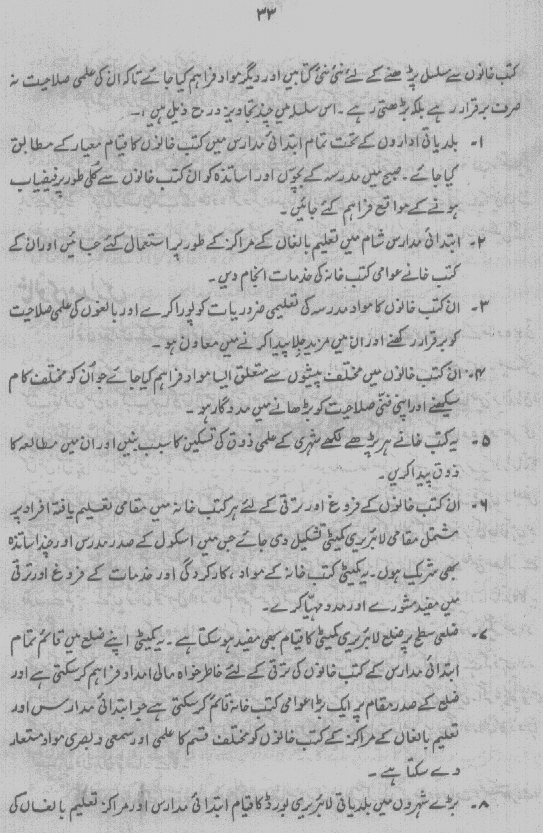 ۳۳
کتب خانوں سے مسلسل پڑھنے کے لئے نئی نئی کتابیں اور دیگر مواد فراہم کیا جائے تاکہ ان کی علمی صلاحیت نہ
صرف برقرار رہے بلکہ بڑھتی رہے ۔ اس سلسلہ میں چند تجاویز درج ذیل ہیں :۔
۱۔ بلدیاتی اداروں کے تحت تمام ابتدائی مدارس میں کتب خانوں کا قیام معیار کے مطابق
کیا جائے ۔ صبح میں مدرسہ کے بچوں اور اساتذہ کو ان کتب خانوں سے کلی طور پر فیضیاب
ہونے کے مواقع فراہم کئے جائیں ۔
۲۔ ابتدائی مدارس شام میں تعلیم بالغاں کے مراکز کے طور پر استعمال کئے جائیں اور ان کے
کتب خانے عوامی کتب خانہ کی خدمات انجام دیں ۔
۳۔ ان کتب خانوں کا مواد مدرسہ کی تعلیمی ضروریات کو پورا کرے اور بالغوں کی علمی صلاحیت
کو برقرار رکھنے اور ان میں مزید جلا پیدا کرنے میں معاون ہو ۔
۴۔ ان کتب خانوں میں مختلف پیشوں سے متعلق ایسا مواد فراہم کیا جائے جو ان کو مختلف کام
سیکھنے اور اپنی فنی صلاحیت کو بڑھانے میں مددگار ہو ۔
۵۔ یہ کتب خانے ہر پڑھے لکھے شہری کے علمی ذوق کی تسکین کا سبب بنیں اور ان میں مطالعہ کا
ذوق پیدا کریں ۔
۶۔ ان کتب خانوں کے فروغ اور ترقی کے لئے ہر کتب خانہ میں مقامی تعلیم یافتہ افراد پر
مشتمل مقامی لائبریری کمیٹی تشکیل دی جائے جس میں اسکول کے صدر مدرس اور چند اساتذہ
بھی شریک ہوں ۔ یہ کمیٹی کتب خانہ کے مواد ، کارکردگی اور خدمات کے فروغ اور ترقی
میں مفید مشورے اور مدد مہیا کرے ۔
۷۔ ضلعی سطح پر ضلع لائبریری کمیٹی کا قیام بھی مفید ہو سکتا ہے ۔ یہ کمیٹی اپنے ضلع میں قائم تمام
ابتدائی مدارس کے کتب خانوں کی ترقی کے لئے خاطر خواہ مالی امداد فراہم کر سکتی ہے اور
ضلع کے صدر مقام پر ایک بڑا عوامی کتب خانہ قائم کر سکتی ہے جو ابتدائی مدارس اور
تعلیم بالغاں کے مراکز کے کتب خانوں کو مختلف قسم کا علمی اور سمعی و بصری مواد مستعار
دے سکتا ہے ۔
۸۔ بڑے شہروں میں بلدیاتی لائبریری بورڈ کا قیام ابتدائی مدارس اور مراکز تعلیم بالغاں کی